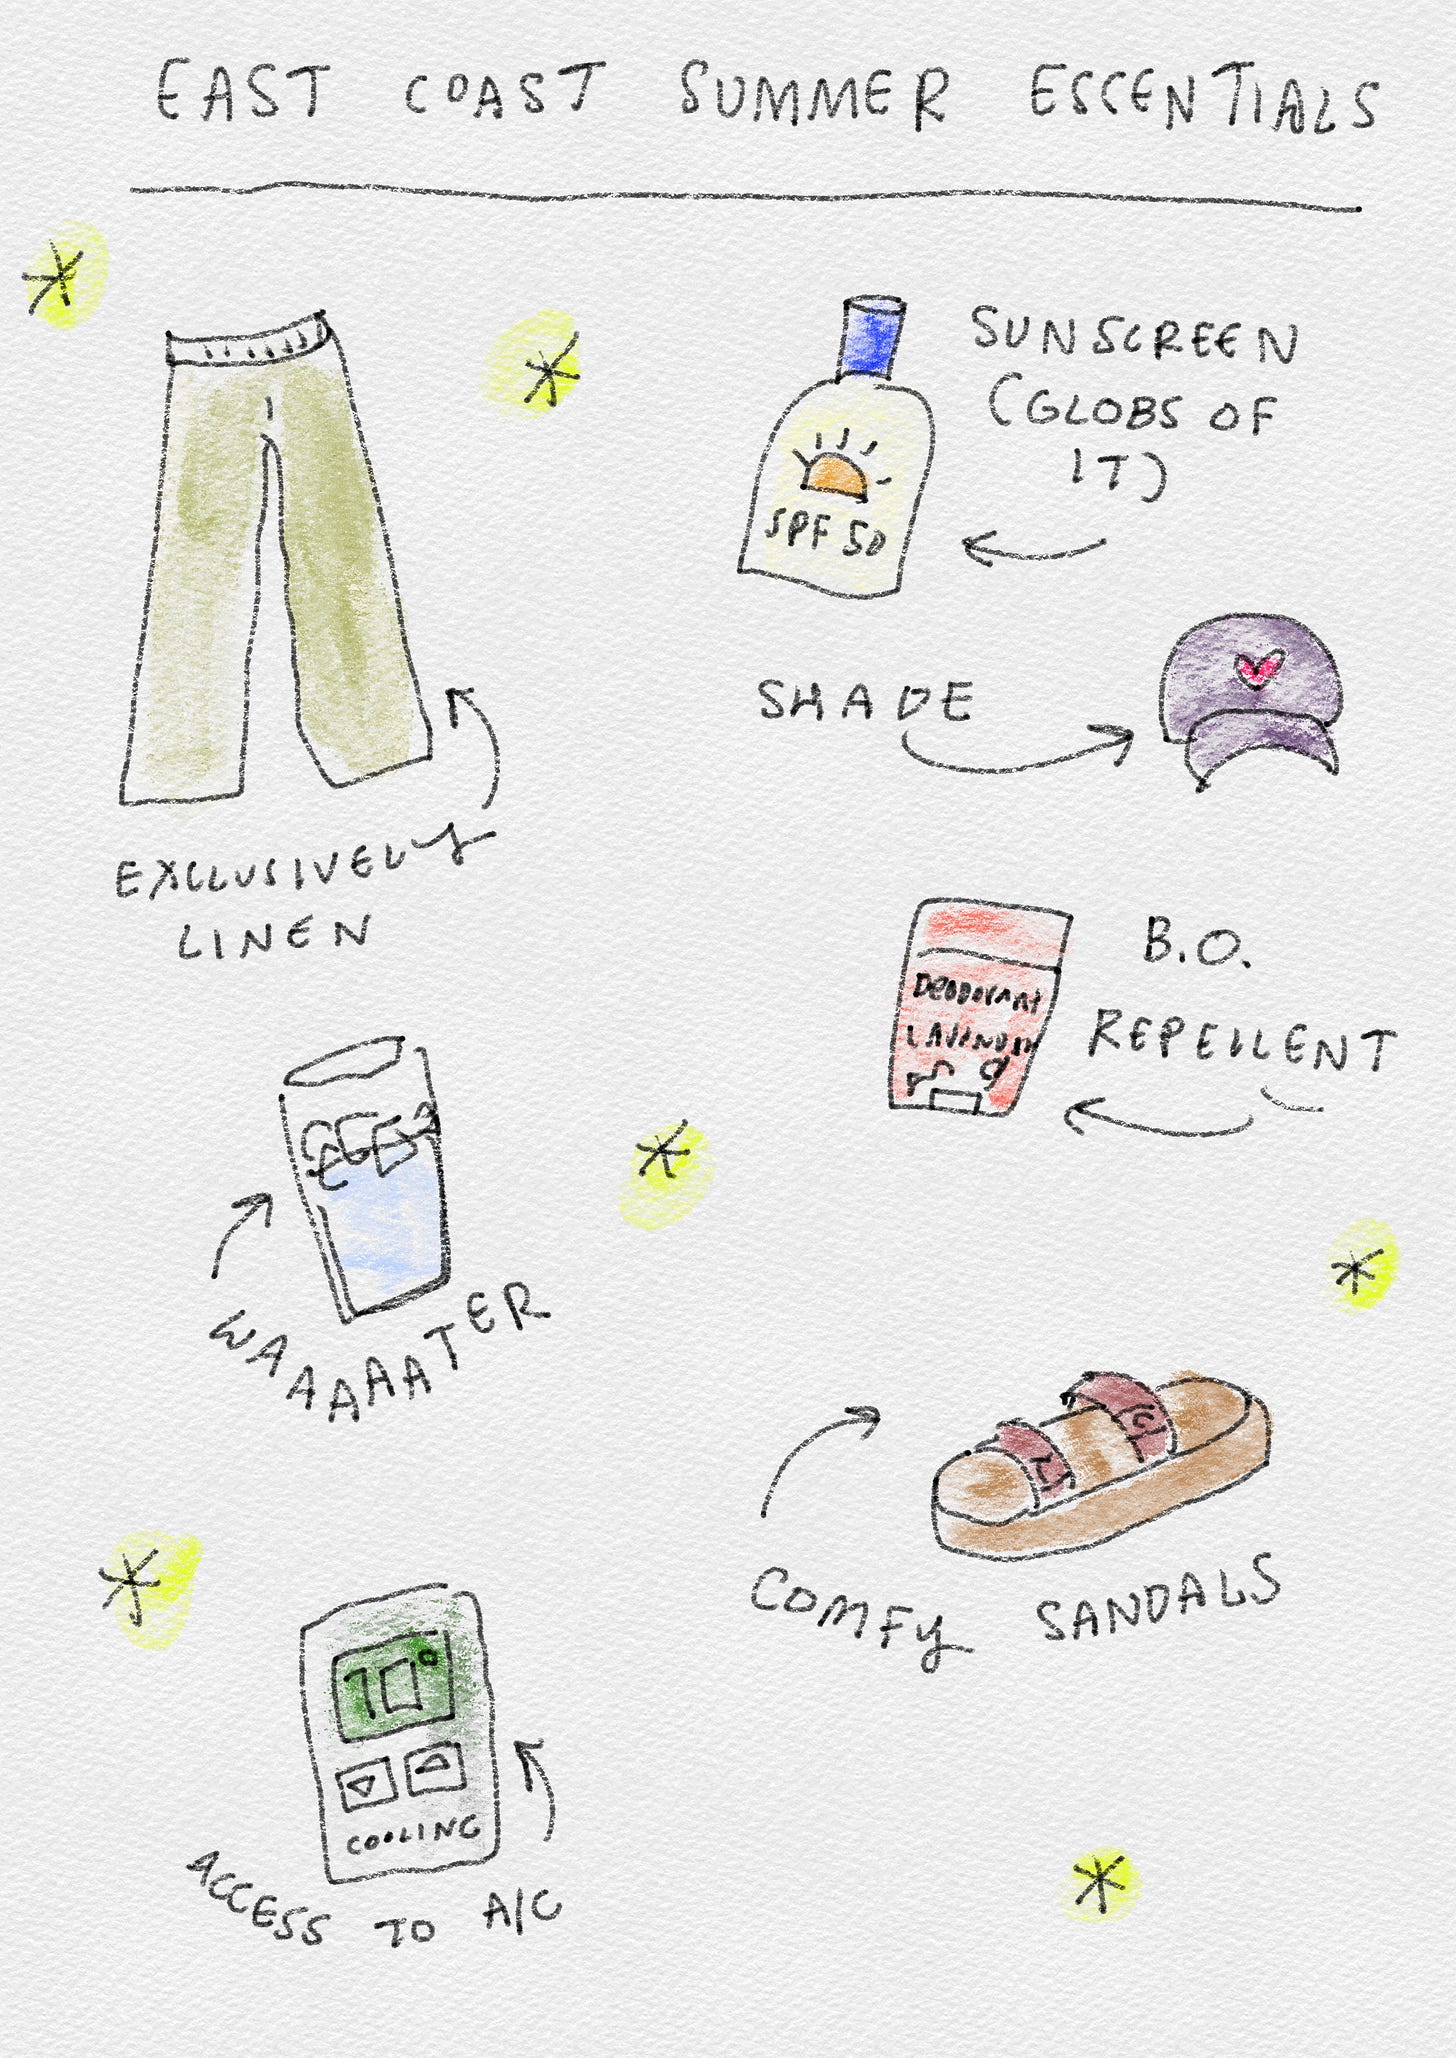 EAST COAST SUMMER ESSENTIALS
SUNSCREEN
(GLOBS OF
IT)
SPF 50
SHADE
EXCLUSIVELY
LINEN
DEODORANT
LAVENDER
B.O.
REPELLENT
WAAAAATER
COMFY SANDALS
70°
COOLING
ACCESS TO A/C